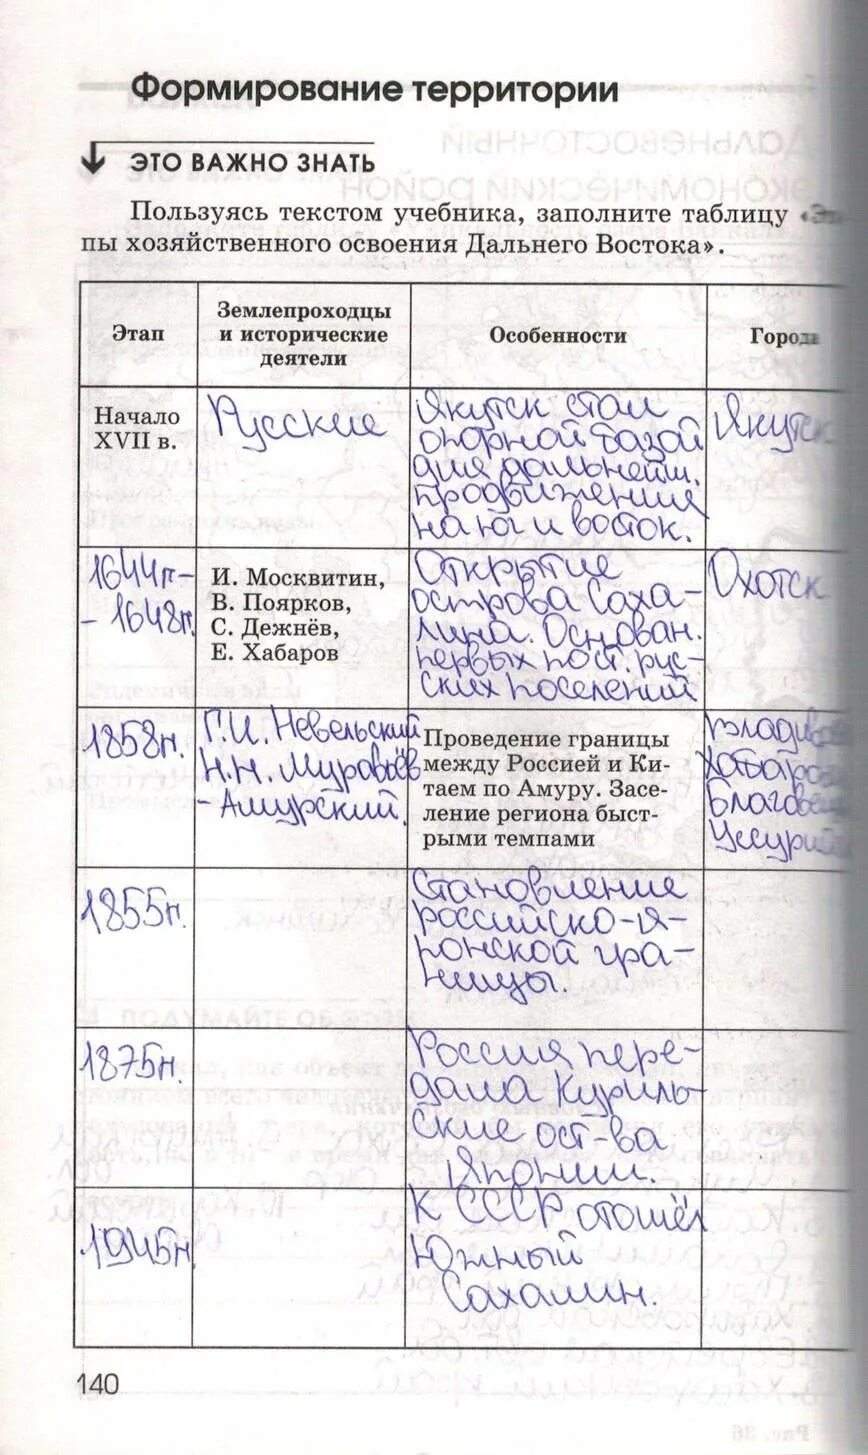 Формирование территории
ЭТО ВАЖНО ЗНАТЬ
Пользуясь текстом учебника, заполните таблицу «Эта-
пы хозяйственного освоения Дальнего Востока».
Этап
Землепроходцы
и исторические
деятели
Особенности
Города
Начало
XVII в.
Русские
Якутск стал
опорной базой
для дальнейш.
продвижения
на юг и восток.
Якутск
1644гг-
-1648гг.
И. Москвитин,
В. Поярков,
С. Дежнёв,
Е. Хабаров
Открытие
острова Саха-
лина. Основан.
первых пост. рус-
ских поселений
Охотск
1858г.
Г.И. Невельский
Н.Н. Муравьёв
-Амурский.
Проведение границы
между Россией и Ки-
таем по Амуру. Засе-
ление региона быст-
рыми темпами
Владив
Хабаров
Благовещ
Уссурий
1855г.
Становление
российско-я-
понской гра-
ницы.
1875г.
Россия пере-
дала Куриль-
ские ост-ва
Японии.
1945г.
К СССР отошёл
Южный
Сахалин.
140